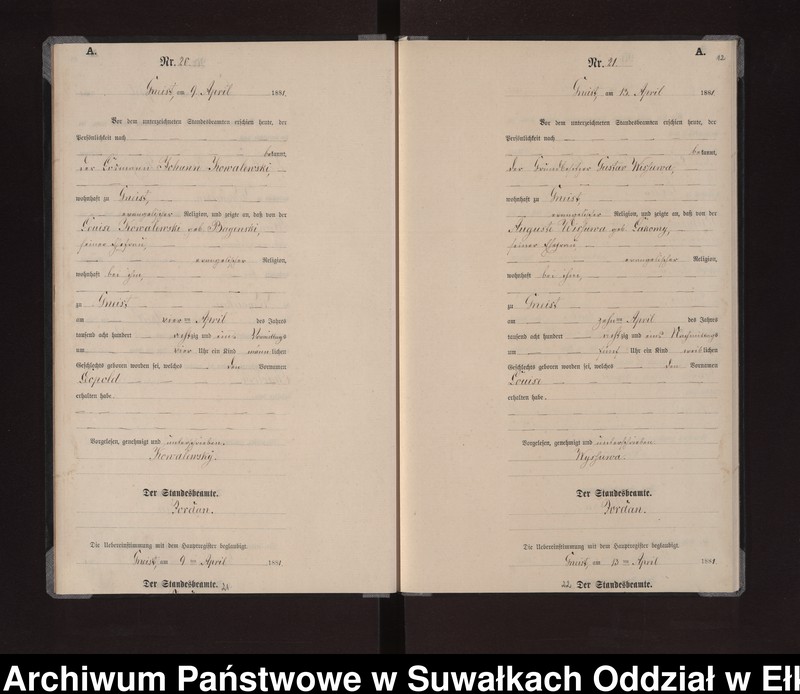 A.
Nr. 20
Gneist, am 9. April 1881.
Vor dem unterzeichneten Standesbeamten erschien heute, der
Persönlichkeit nach
bekannt,
der Losmann Johann Kowalewski,
wohnhaft zu Gneist,
evangelischer Religion, und zeigte an, daß von der
Louise Kowalewski geb.
seiner Ehefrau,
evangelischer Religion,
wohnhaft bei ihm,
zu Gneist
am vier ten April des Jahres
tausend acht hundert achtzig und eins Vormittags
um vier Uhr ein Kind männlichen
Geschlechts geboren worden sei, welches den Vornamen
Leopold
erhalten habe.
Vorgelesen, genehmigt und unterschrieben.
Kowalewsky.
Der Standesbeamte.
Jordan.
Die Uebereinstimmung mit dem Hauptregister beglaubigt.
Gneist, am 9 ten April 1881.
Der Standesbeamte.
A.
82.
Nr. 21
Gneist, am 13. April 1881.
Vor dem unterzeichneten Standesbeamten erschien heute, der
Persönlichkeit nach
bekannt,
der Grundbesitzer Gustav
wohnhaft zu Gneist,
evangelischer Religion, und zeigte an, daß von der
Auguste geb.
seiner Ehefrau,
evangelischer Religion,
wohnhaft bei ihm,
zu Gneist
am zehn ten April des Jahres
tausend acht hundert achtzig und eins Nachmittags
um fünf Uhr ein Kind weiblichen
Geschlechts geboren worden sei, welches den Vornamen
Louise
erhalten habe.
Vorgelesen, genehmigt und unterschrieben.
Der Standesbeamte.
Jordan.
Die Uebereinstimmung mit dem Hauptregister beglaubigt.
Gneist, am 13 ten April 1881.
22. Der Standesbeamte.
Archiwum Państwowe w Suwałkach Oddział w Eł